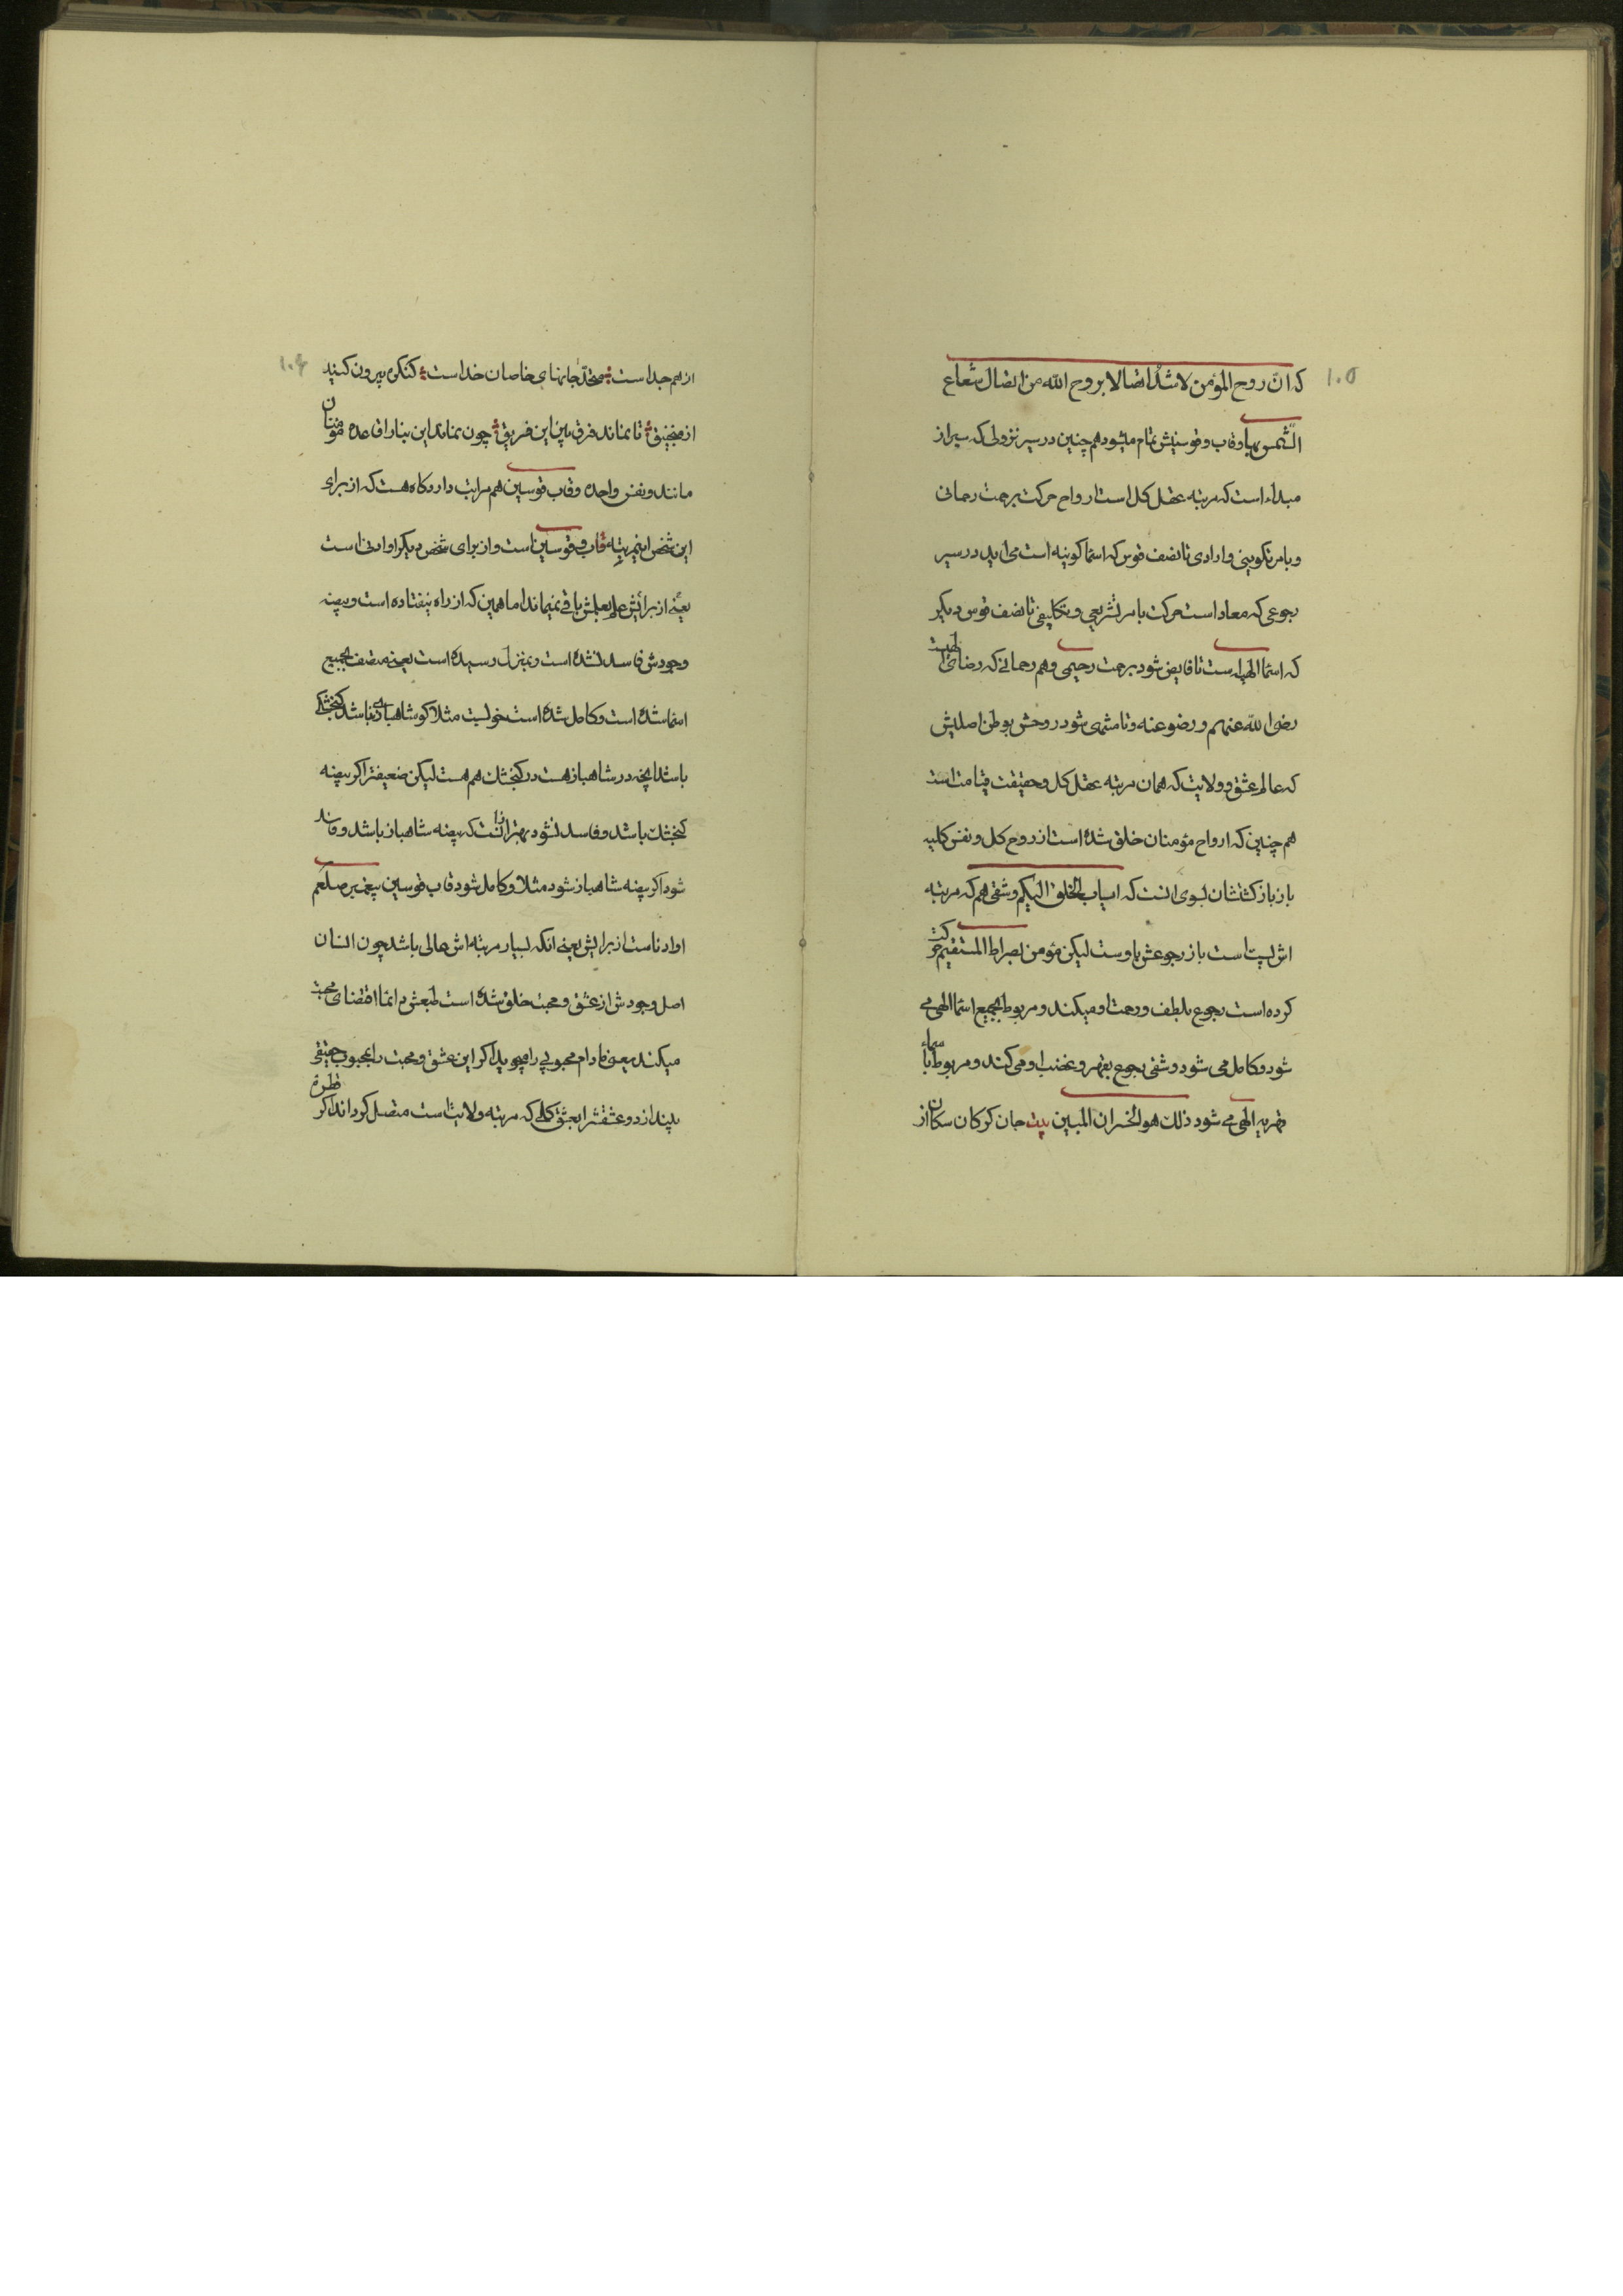 ۱۰۵
که انّ روح المؤمن لاشدّ اتصالا بروح الله من اتصال شعاع
الشّمس بها و قاب و قوسینش تمام میشود هم چنین در سیر نزولی که سیر از
مبداء است که مرتبه عقل کل است ارواح حرکت برحمت رحمانی
و بامر تکوینی و ارادی تا نصف قوس که اسما کونیه است می اید در سیر
رجوعی که معاد است حرکت بامر تشریعی و تکلیفی تا نصف قوس دیکر
که اسما الهیه است تا فایض شود برحمت رحیمی و هم رحمانی که رضای الهیست
رضی الله عنهم و رضو عنه و تا منتهی شود روحش بوطن اصلیش
که عالم عشق و ولایت که همان مرتبه عقل کل و حقیقت قیامت است
هم چنین که ارواح مؤمنان خلق شده است از روح کل و نفس کلیه
باز بازکشتشان بسوی انست که ایاب الخلق الیکم و شقی هم که مرتبه
اش پست است باز رجوعش باوست لیکن مؤمن بصراط المستقیم حرکت
کرده است رجوع بلطف و رحمت او میکند و مربوط بجمیع اسما الهی می
شود و کامل می شود و شقی رجوع بقهر و غضب او می کند و مربوط با سماء
قهریه الهی می شود ذلک هو الخسران المبین بیت جان کرکان سکان از
۱۰۶
از هم جداست متحد جانهای خاصان خداست کنکره بیرون کنید
از منجنیق تا نماند فرق بین این فریق چون نماند این بنا را قاعده مؤمنان
مانند و نفس واحده و قاب قوسین هم مراتب دارد کاه هست که از برای
این شخص اینمرتبه قاب و قوسین است و از برای شخص دیکر او ادنی است
یعنی از برایش علم بعلمش باقی نمیماند اما همین که از راه نیفتاده است و بیضه
وجودش فاسد نشده است و بمنزل رسیده است یعنی متصف بجمیع
اسما شده است و کامل شده است خوبست مثلا کو شاهباز نباشد کنجشک
باشد انچه در شاهباز هست در کنجشک هم هست لیکن ضعیفتر اکر بیضه
کنجشک باشد و فاسد نشود بهتر از انست که بیضه شاهباز باشد و فاسد
شود اکر بیضه شاهباز شود مثلا و کامل شود قاب قوسین پیغمبر صلعم
او ادناست از برایش یعنی انکه بسیار مرتبه اش عالی باشد چون انسان
اصل وجودش از عشق و محبت خلق شده است طبعش دائما اقتضای محبت
میکند یعنی مادام محبوبی را میجوید اکر این عشق و محبت را بمحبوب حقیقی
بیندازد و عشقش را بعشق کلی که مرتبه ولایت است متصل کرداند اکر قطره